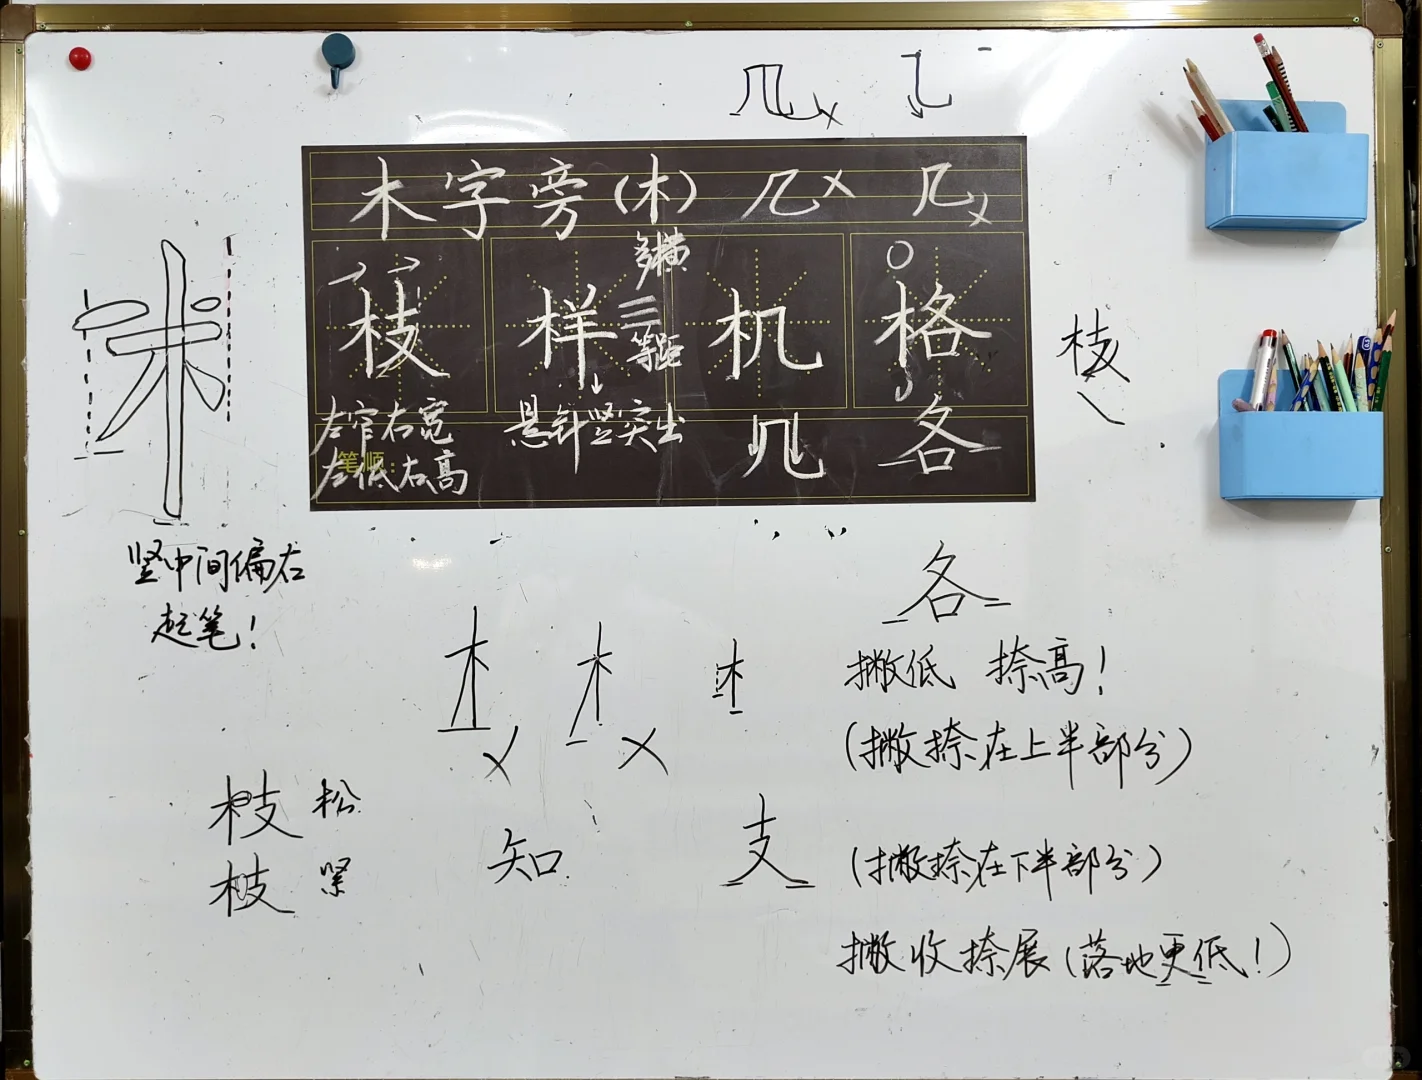 几
木字旁(木) 几 几
多横
枝 样 三 机 格
等距
左窄右宽 悬针竖突出 几 各
笔顺:
左低右高
枝
木
竖中间偏右
起笔!
各
木 木 木
撇低 捺高!
(撇捺在上半部分)
枝 松
枝 紧
知
支
(撇捺在下半部分)
撇收捺展(落地更低!)